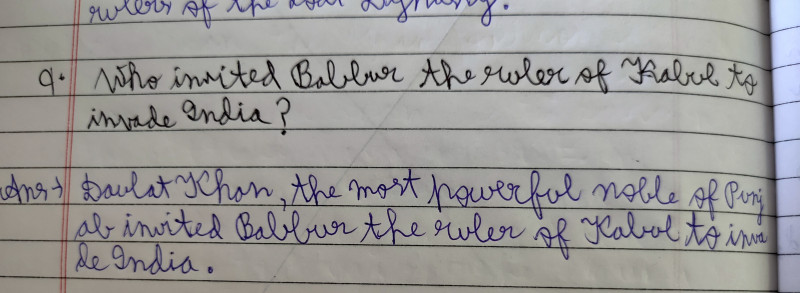 rulers of the Lodi Dynasty.
9. Who invited Babbur the ruler of Kabul to
invade India?
Ans→ Daulat Khan, the most powerful noble of Punj
ab invited Babbur the ruler of Kabul to inva
de India.